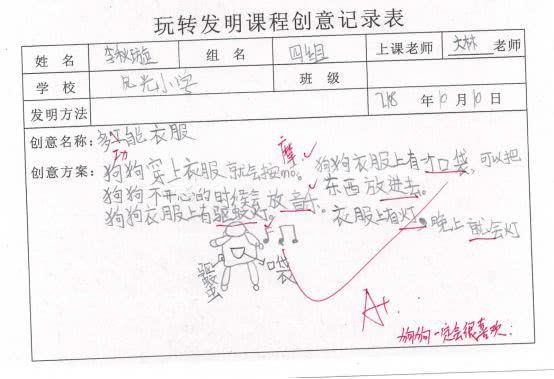 玩转发明课程创意记录表
姓 名 李秋璇 组 名 四组 上课老师 大林 老师
学 校 光小学 班 级
发明方法 年 10 月 10 日
创意名称: 多功能衣服
创意方案: 狗狗穿上衣服就会按mo。摩 狗狗衣服上有个口袋,可以把
狗狗不开心的时候会放音乐。东西放进去。
狗狗衣服上有驱蚊灯。衣服上有灯,晚上就会灯
驱 口袋
A+
狗狗一定会很喜欢.